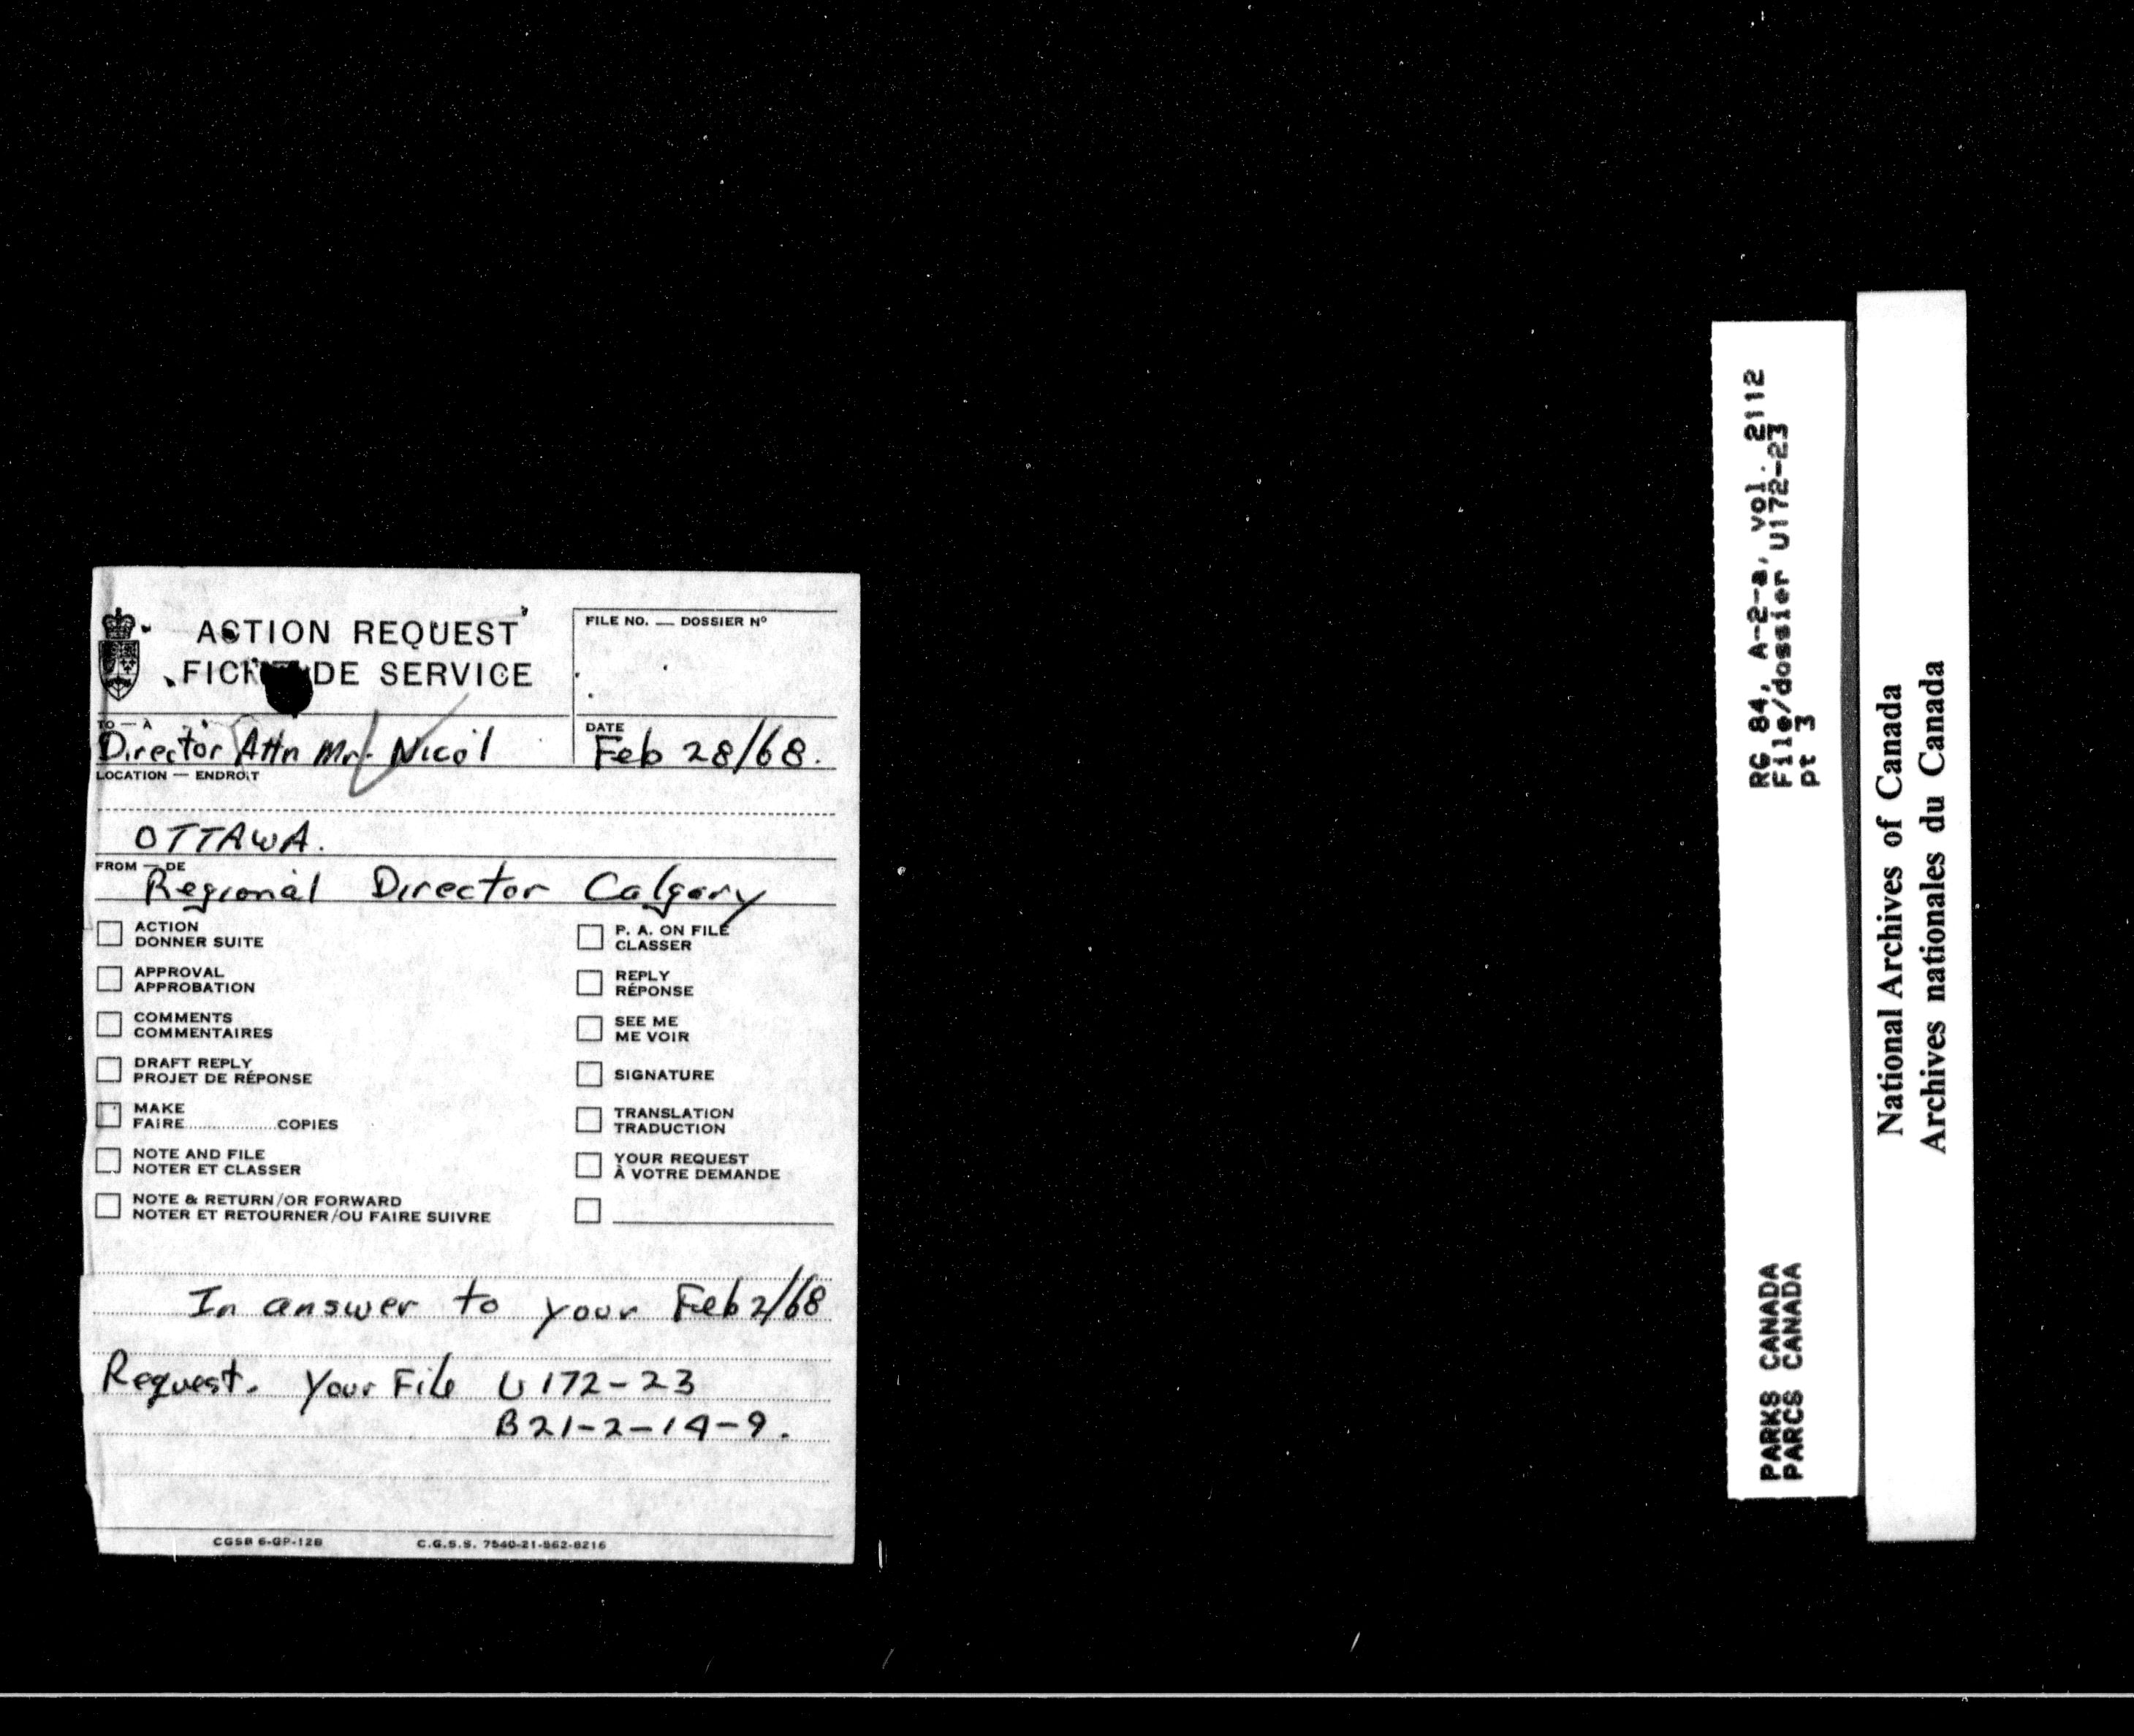 ACTION REQUEST
FICHE DE SERVICE
FILE NO. — DOSSIER Nº
TO — À
Director Attn Mr. Nicol
DATE
Feb 28/68.
LOCATION — ENDROIT
OTTAWA.
FROM — DE
Regional Director Calgary
ACTION
DONNER SUITE
APPROVAL
APPROBATION
COMMENTS
COMMENTAIRES
DRAFT REPLY
PROJET DE RÉPONSE
MAKE
FAIRE..................COPIES
NOTE AND FILE
NOTER ET CLASSER
NOTE & RETURN/OR FORWARD
NOTER ET RETOURNER/OU FAIRE SUIVRE
P. A. ON FILE
CLASSER
REPLY
RÉPONSE
SEE ME
ME VOIR
SIGNATURE
TRANSLATION
TRADUCTION
YOUR REQUEST
À VOTRE DEMANDE
In answer to your Feb 2/68
Request. Your File U172-23
B21-2-14-9.
CGSB 6-GP-12B
C.G.S.S. 7540-21-862-8216
RG 84, A-2-a, vol. 2112
File/dossier U172-23
pt 3
PARKS CANADA
PARCS CANADA
National Archives of Canada
Archives nationales du Canada